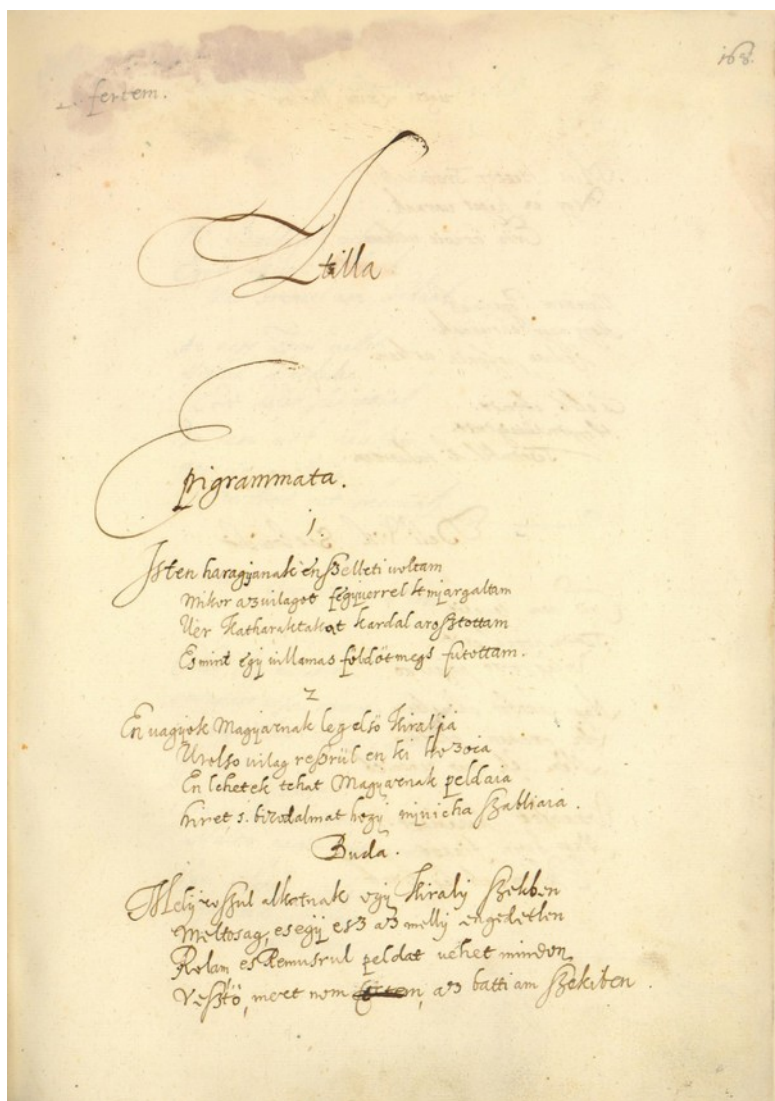 168.
fertem.
Atilla
Epigrammata.
1.
Isten haragianak én szelleti voltam
Mikor az vilagot fegiuerrel
Uér Katharaktakat kardal arosztottam
Es mint egÿ villamas földöt megs futottam.
2
En vagiok Magiarnak leg első Kiralÿa
Utolso vilag reszrül en ki hozoia
En lehetek tehat Magiarnak peldaia
hiret, s. birodalmat hogÿ szabliaia.
Buda.
Melÿ roszszul alkotnak egÿ Kiralÿ székben
Meltosag, es egÿ esz az mellÿ engedetlen
Rolam es Remusrul peldat uehet minden
Vesztö, mert nem az battiam székiben.